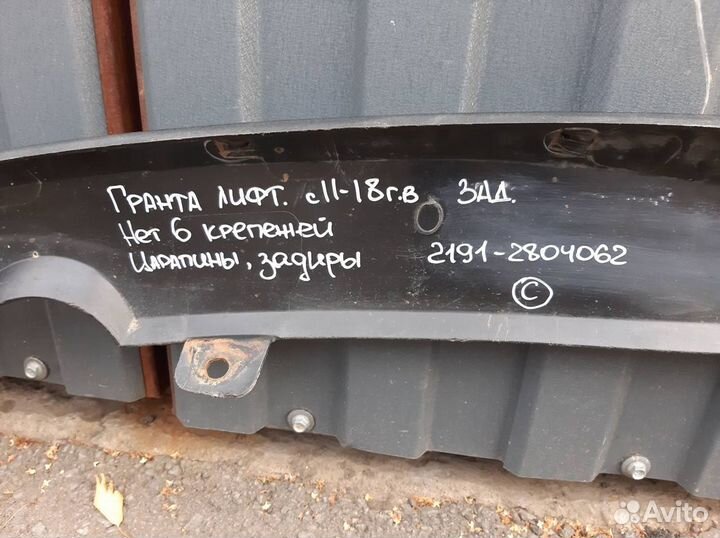 Гранта лифт. с 11-18г.в зад.
Нет 6 крепежей
Царапины, задиры 2191-2804062
©
Avito